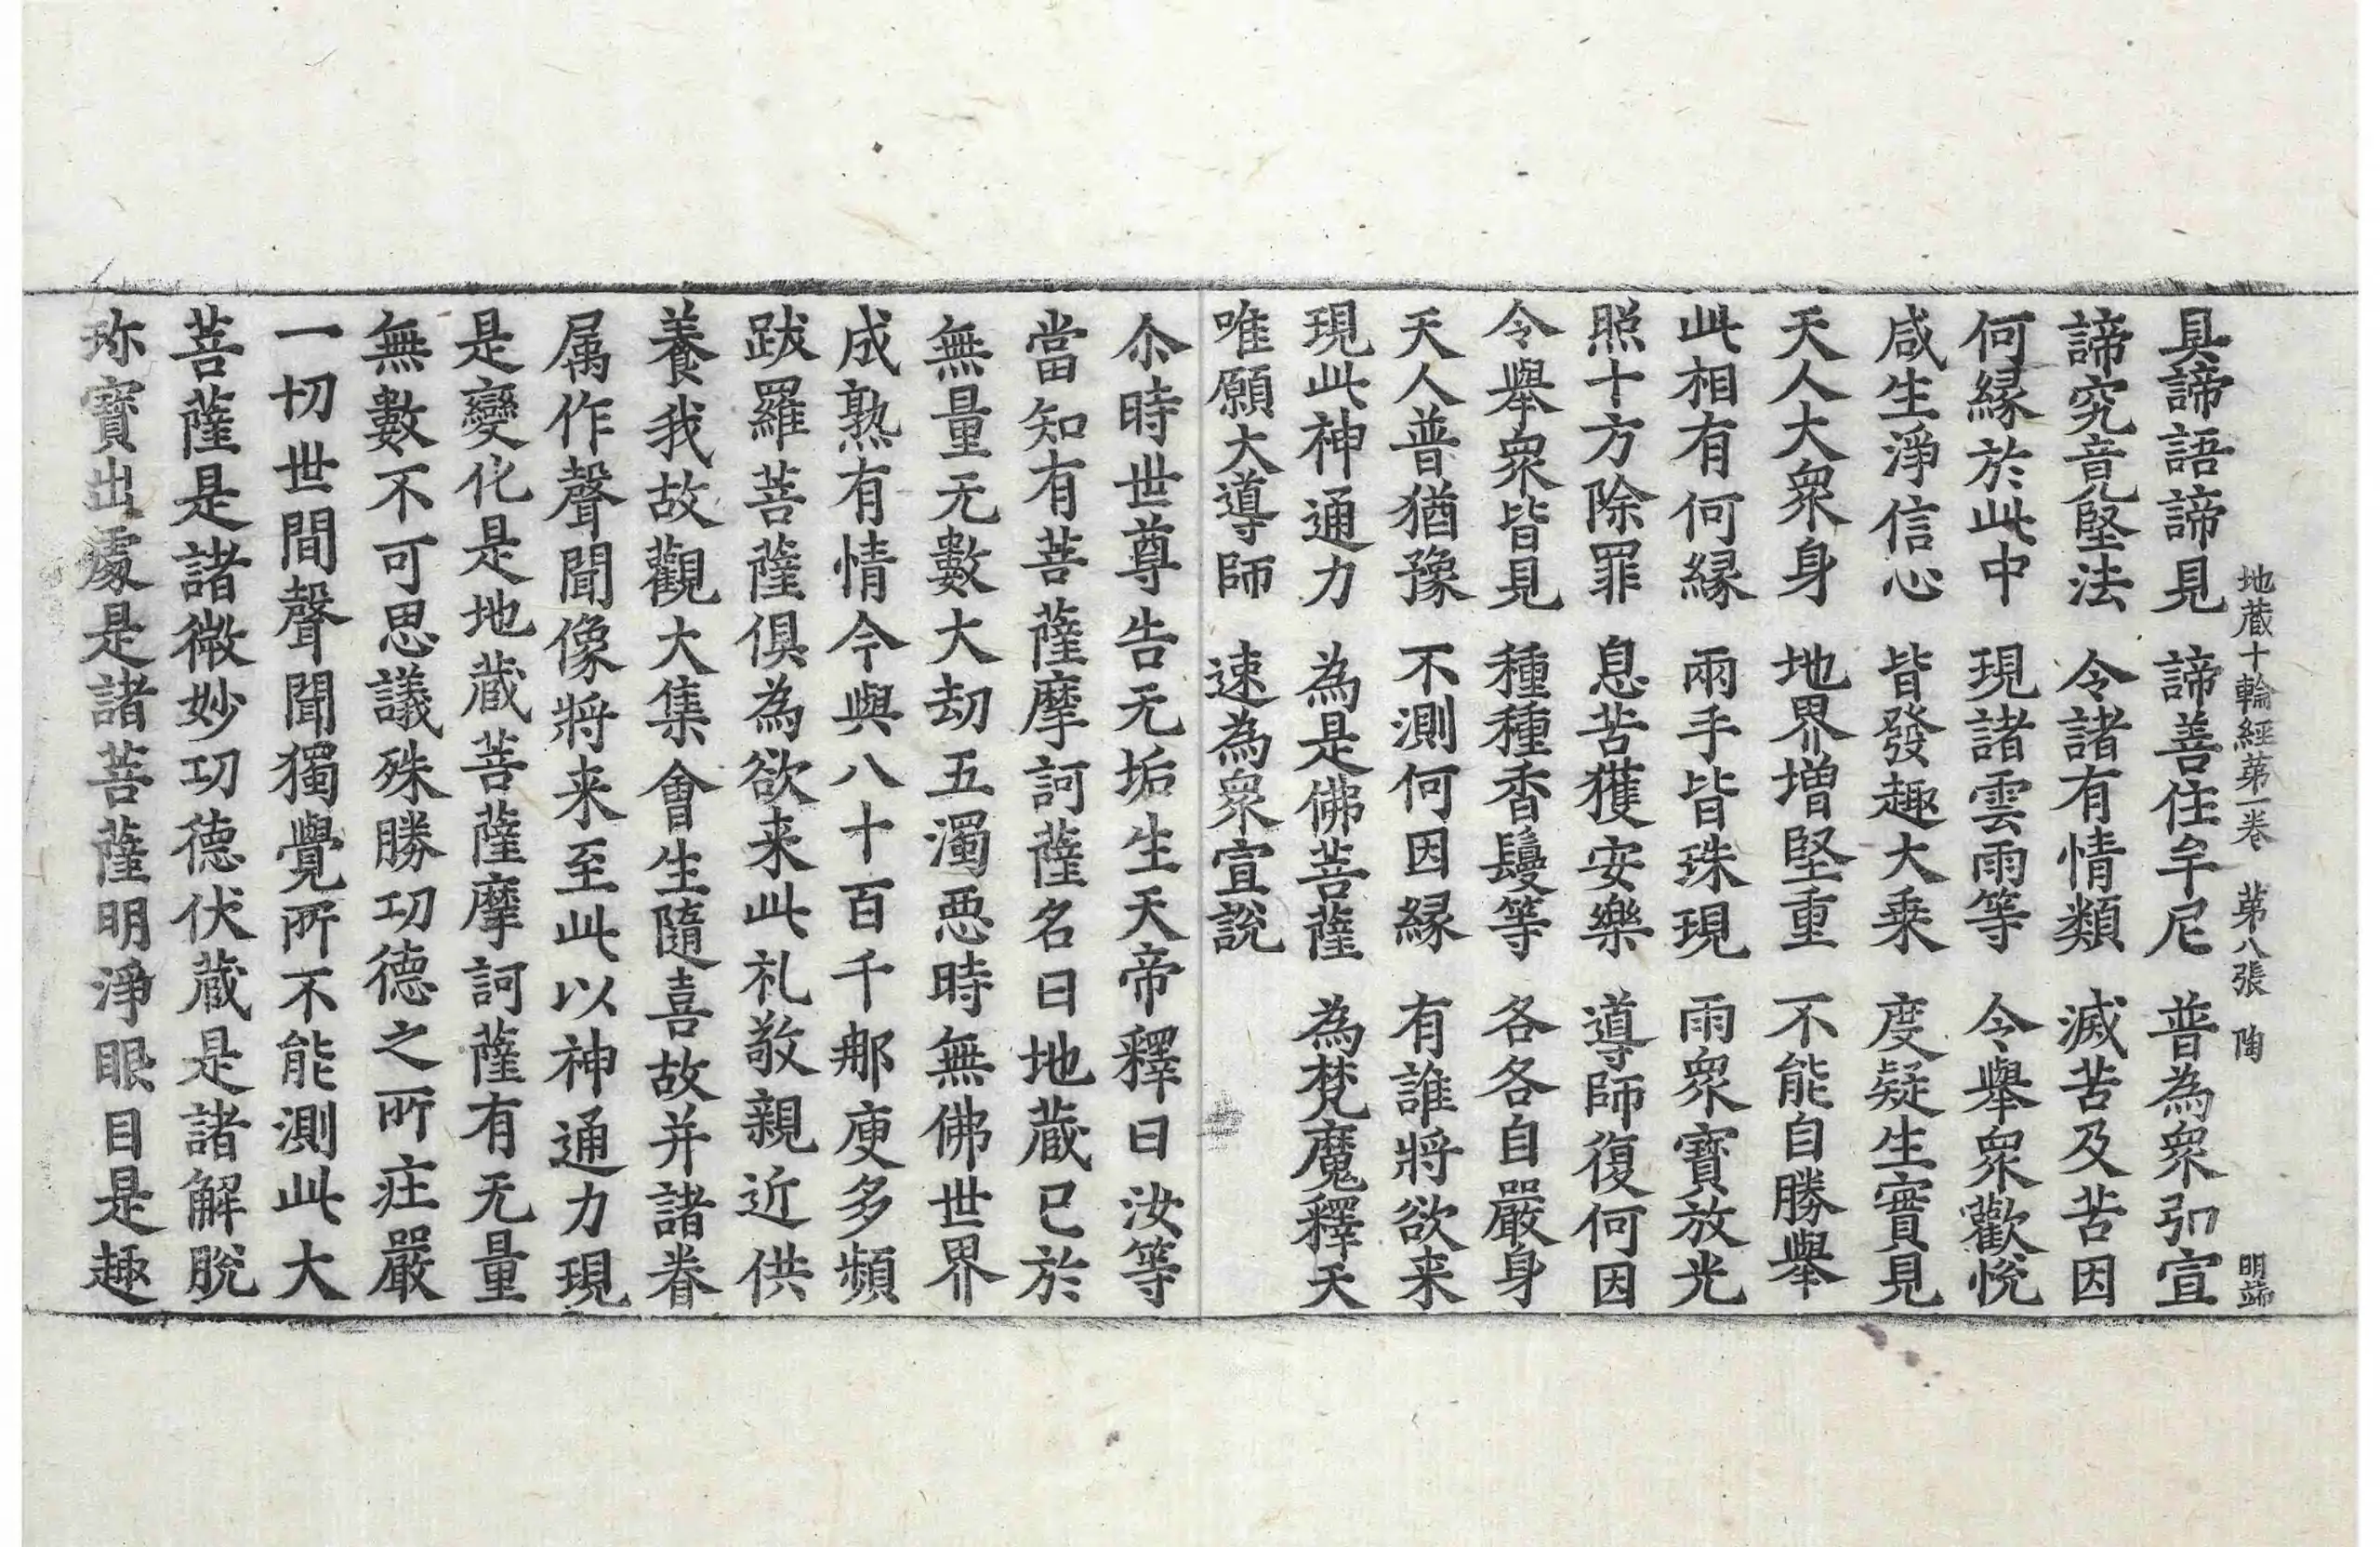 地蔵十輪經苐一卷　苐八張　陶　明端
具諦語諦見　諦善住牟尼　普為衆弘宣
諦究竟堅法　令諸有情類　滅苦及苦因
何緣於此中　現諸雲雨等　令舉衆歡悅
咸生淨信心　皆發趣大乗　度疑生實見
天人大衆身　地界增堅重　不能自勝舉
此相有何緣　兩手皆珠現　雨衆寶放光
照十方除罪　息苦獲安樂　導師復何因
令舉衆皆見　種種香鬘等　各各自嚴身
天人普猶豫　不測何因緣　有誰將欲来
現此神通力　為是佛菩薩　為梵魔釋天
唯願大導師　速為衆宣說
尒時世尊告无垢生天帝釋曰汝等
當知有菩薩摩訶薩名曰地蔵已於
無量无數大劫五濁恶時無佛世界
成熟有情今與八十百千那庾多頻
跋羅菩薩俱為欲来此礼敬親近供
養我故觀大集會生隨喜故并諸眷
属作聲聞像將来至此以神通力現
是變化是地蔵菩薩摩訶薩有无量
無數不可思議殊勝功德之所庄嚴
一切世間聲聞獨覺所不能測此大
菩薩是諸微妙功德伏蔵是諸解脫
珎寶出處是諸菩薩明淨眼目是趣